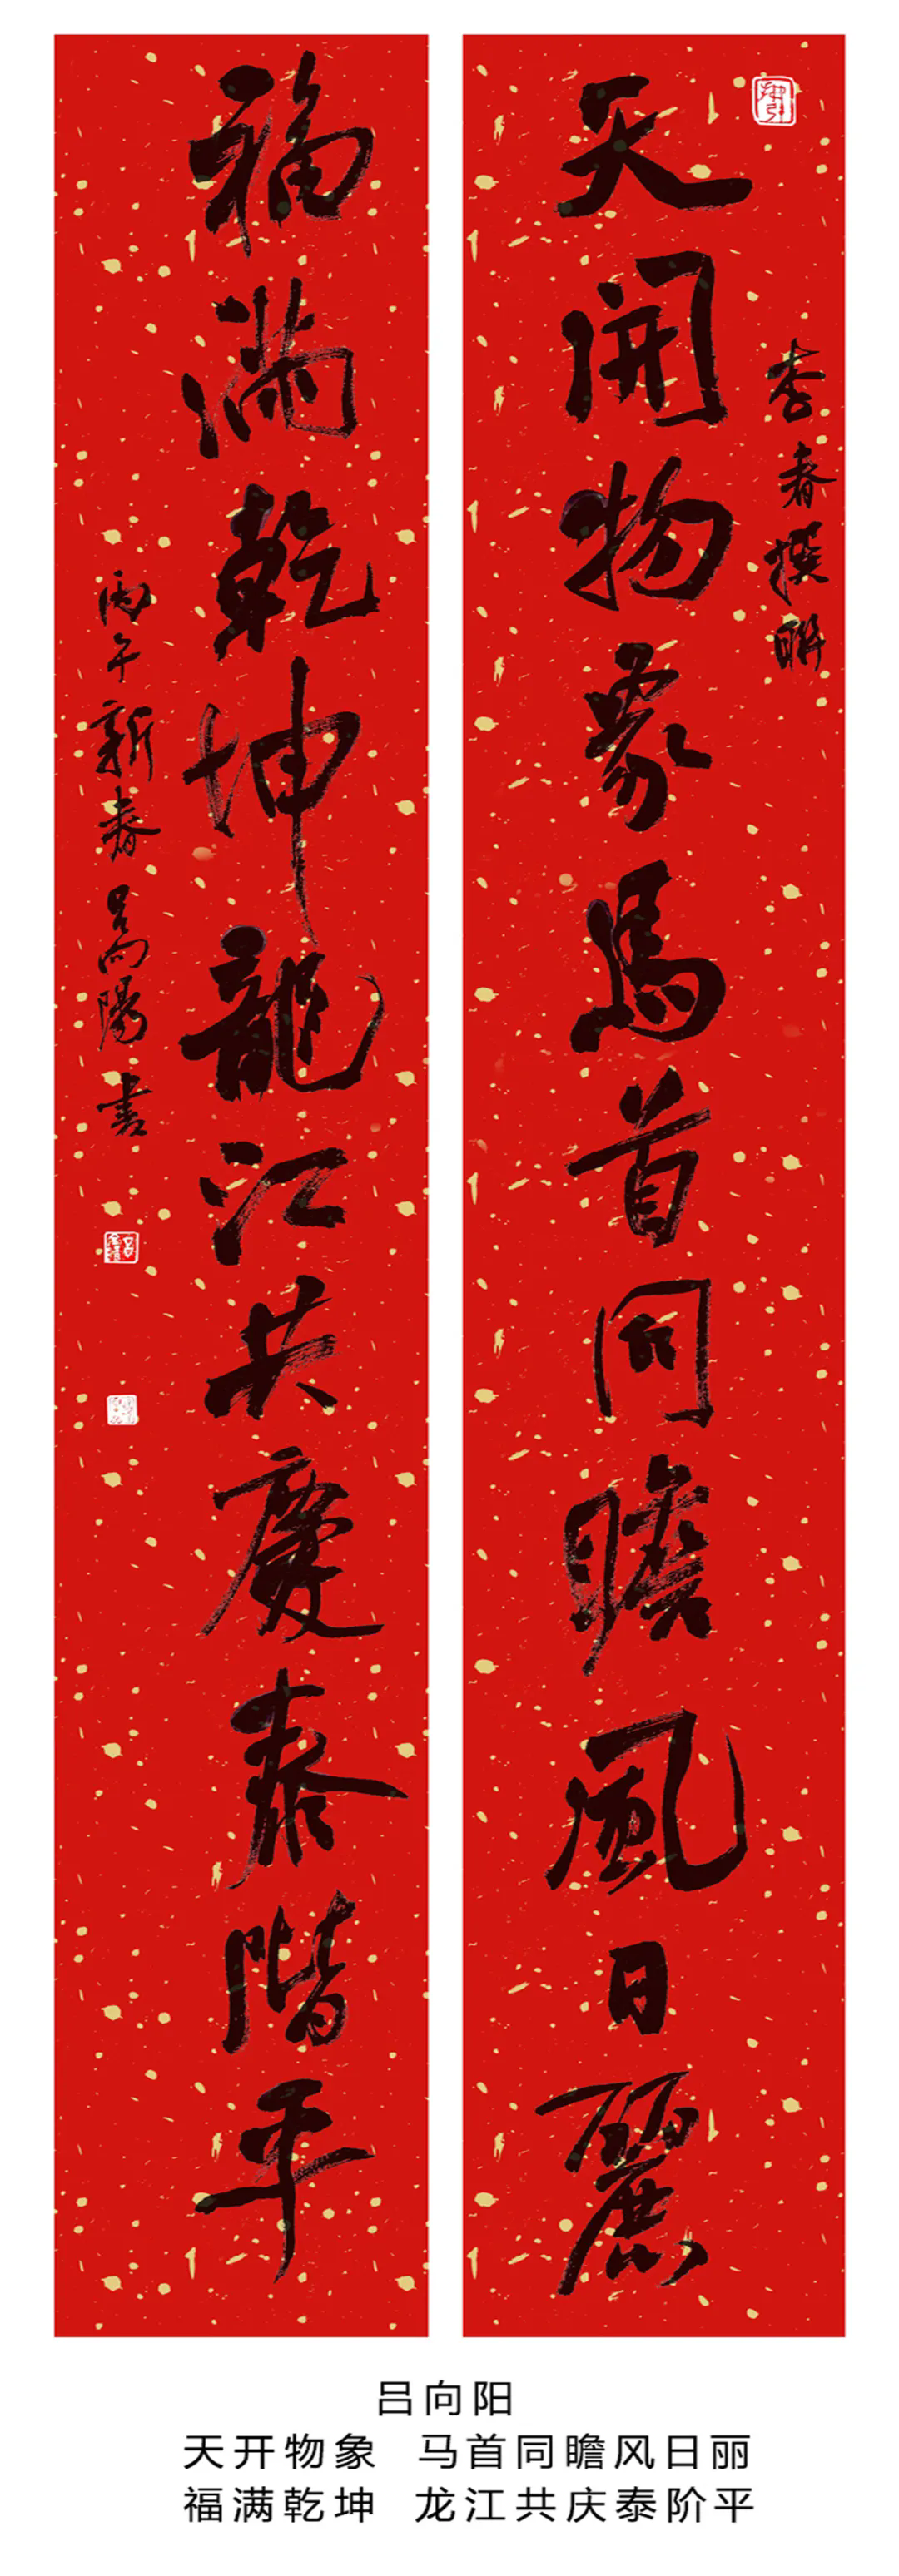 李春撰聯
天開物象馬首同瞻風日麗
福滿乾坤龍江共慶泰階平
丙午新春吕向陽書
吕向阳
天开物象 马首同瞻风日丽
福满乾坤 龙江共庆泰阶平